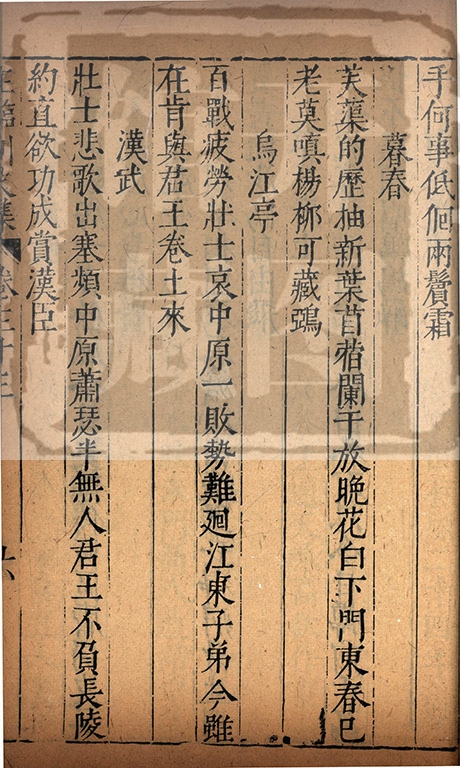 乎何事低佪兩鬢霜
暮春
芙蕖的歷抽新葉苜蓿闌干放晚花白下門東春已
老莫嗔楊栁可藏鵶
烏江亭
百戰疲勞壯士哀中原一敗勢難迴江東子弟今雖
在肯與君王卷土來
漢武
壯士悲歌出塞頻中原蕭瑟半無人君王不負長陵
約直欲功成賞漢臣
王臨川文集 卷三十三 六